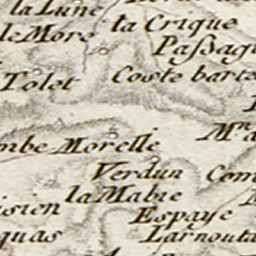 la Lune
la Crique
le More
Passag
Tolet
Coste barte
mbe Morelle
Mn a
Verdun
Com
la Mabre
isien
Espaye
quas
Larnouta